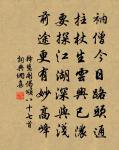 衲僧今日路頭通
拄杖生雲興已濃
要探江湖深與淺
前途更有妙高峰
釋慧開偈頌八十七首
詞典網集